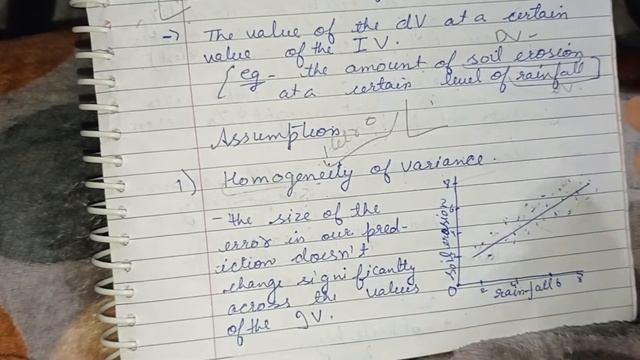 → The value of the dV at a certain
value of the IV.
DV -
[eg - the amount of soil erosion
at a certain level of rainfall]
IV
Assumption
1) Homogeneity of variance.
- the size of the
error in our pred-
iction doesn't
change significantly
across the values
of the IV.
soil erosion
8
6
0 2 4 6 8
rainfall